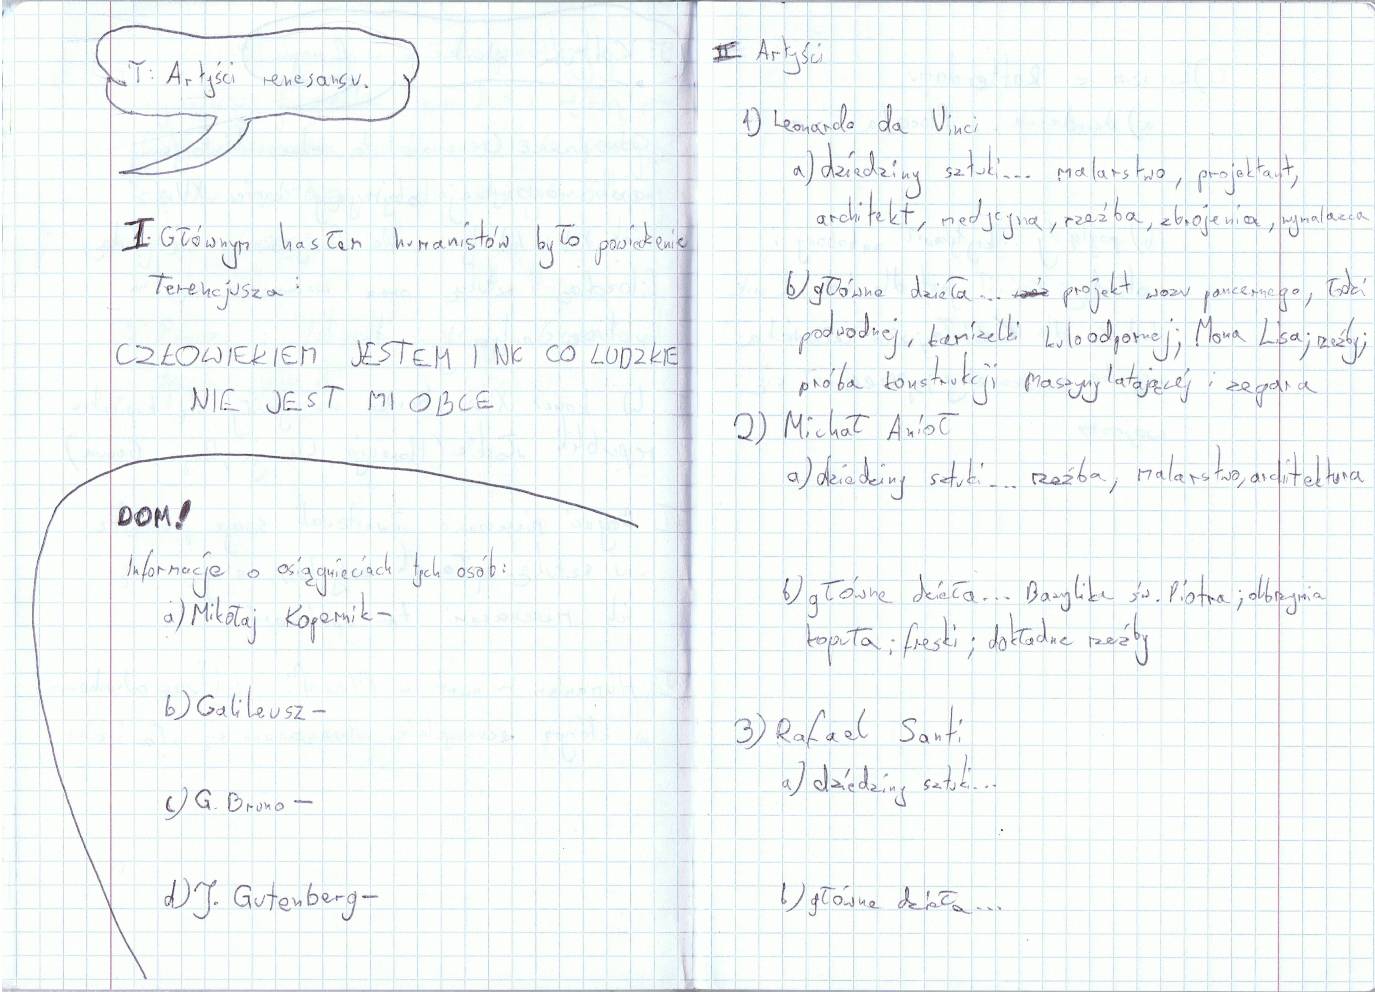 T: Artyści renesansu.
I. Głównym hasłem humanistów było powiedzenie
Terencjusza:
CZŁOWIEKIEM JESTEM I NIC CO LUDZKIE
NIE JEST MI OBCE
DOM!
Informacje o osiągnięciach tych osób:
a) Mikołaj Kopernik –
b) Galileusz –
c) G. Bruno –
d) J. Gutenberg –
II Artyści
1) Leonardo da Vinci
a) dziedziny sztuki... malarstwo, projektant,
architekt, medycyna, rzeźba, zbrojenia, wynalazca
b) główne dzieła... projekt wozu pancernego, łodzi
podwodnej, kamizelki kuloodpornej; Mona Lisa; rzeźby;
próba konstrukcji maszyny latającej i zegara
2) Michał Anioł
a) dziedziny sztuki... rzeźba, malarstwo, architektura
b) główne dzieła... Bazylika św. Piotra; olbrzymia
kopuła; freski; dokładne rzeźby
3) Rafael Santi
a) dziedziny sztuki...
b) główne dzieła...